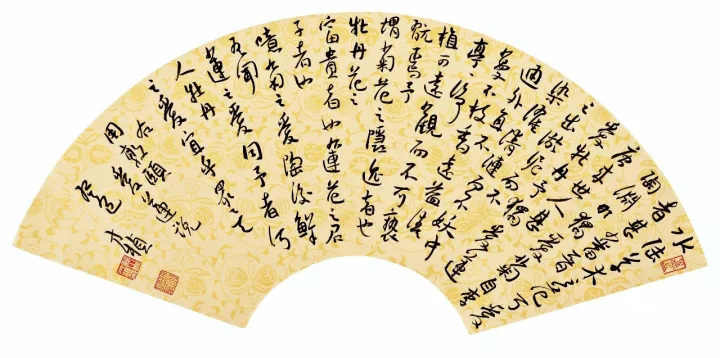 水陸草木之花可愛
者甚蕃晉
陶淵明獨愛菊自李
唐來世人甚愛
牡丹予獨愛蓮
之出淤泥而不
染濯清漣而不妖中
通外直不
蔓不枝香遠益清
亭亭淨
植可遠觀而不可褻
玩焉予
謂菊花之隱逸者也
牡丹花之
富貴者也蓮花之君
子者也
噫菊之愛陶後鮮
有聞
蓮之愛同予者何
人牡丹
之愛宜乎眾矣
右
周敦頤愛蓮說